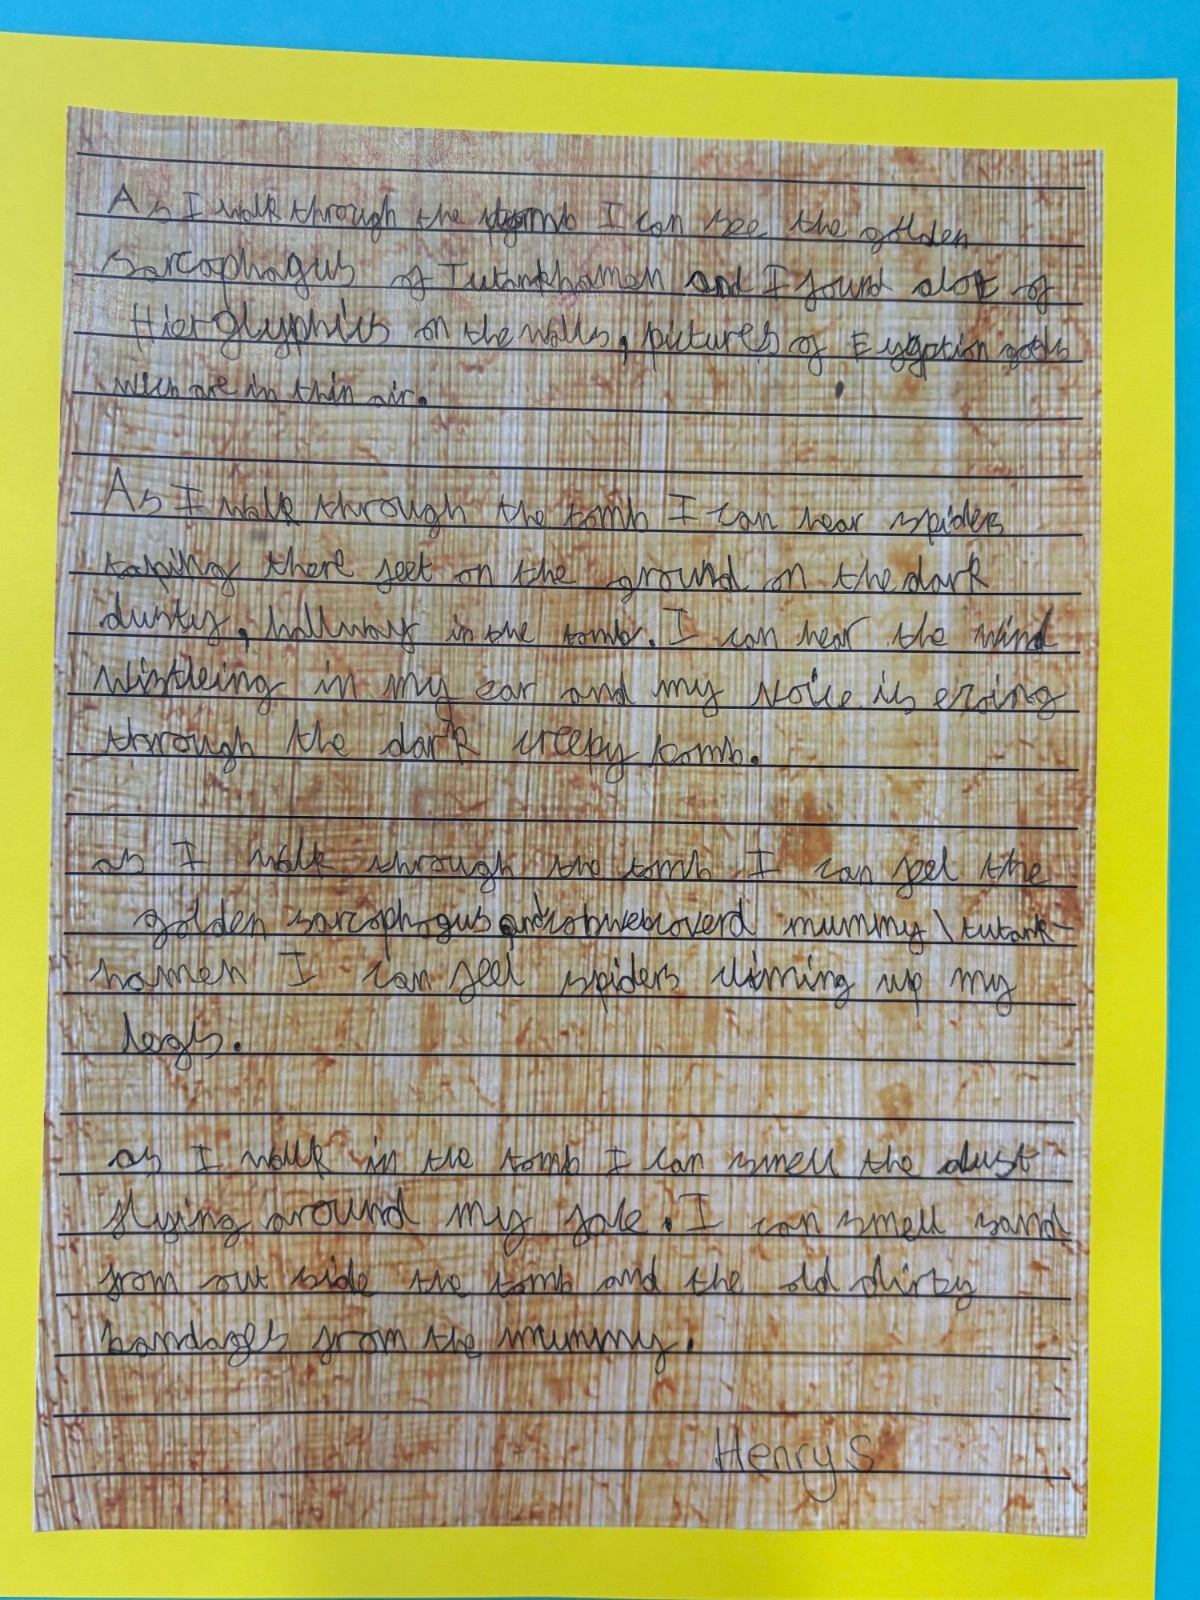 As I walk through the tomb I can see the golden
sarcophagus of Tutankhamen and I found alot of
Hierglyphics on the walls, pictures of Eygption gods
wich are in thin air.
As I walk through the tomb I can hear spiders
taping there feet on the ground on the dark
dusty, hallway in the tomb. I can hear the wind
wistleing in my ear and my voice is
through the dark creepy tomb.
as I walk through the tomb I can feel the
golden sarcophagus and cobwebcoverd mummy \ tutank-
hamen I can feel spiders climing up my
legs.
as I walk in the tomb I can smell the dust
flying around my face. I can smell sand
from out side the tomb and the old dirty
bandages from the mummy.
Henry S